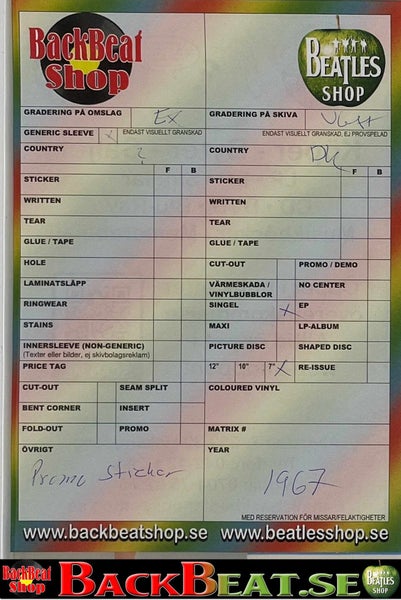 BackBeat Shop
BEATLES SHOP
GRADERING PÅ OMSLAG Ex
GRADERING PÅ SKIVA
GENERIC SLEEVE x
ENDAST VISUELLT GRANSKAD
ENDAST VISUELLT GRANSKAD, EJ PROVSPELAD
COUNTRY ?
COUNTRY DK
F B
F B
STICKER
STICKER
WRITTEN
WRITTEN
TEAR
TEAR
GLUE / TAPE
GLUE / TAPE
HOLE
CUT-OUT
PROMO / DEMO
LAMINATSLÄPP
VÄRMESKADA / VINYLBUBBLOR
NO CENTER
RINGWEAR
SINGEL x
EP
STAINS
MAXI
LP-ALBUM
INNERSLEEVE (NON-GENERIC)
(Texter eller bilder, ej skivbolagsreklam)
PICTURE DISC
SHAPED DISC
PRICE TAG
12" 10" 7" x
RE-ISSUE
CUT-OUT
SEAM SPLIT
COLOURED VINYL
BENT CORNER
INSERT
FOLD-OUT
PROMO
MATRIX #
ÖVRIGT
YEAR
Promo sticker
1967
MED RESERVATION FÖR MISSAR/FELAKTIGHETER
www.backbeatshop.se
www.beatlesshop.se
BackBeat Shop
BACKBEAT.SE
BEATLES SHOP